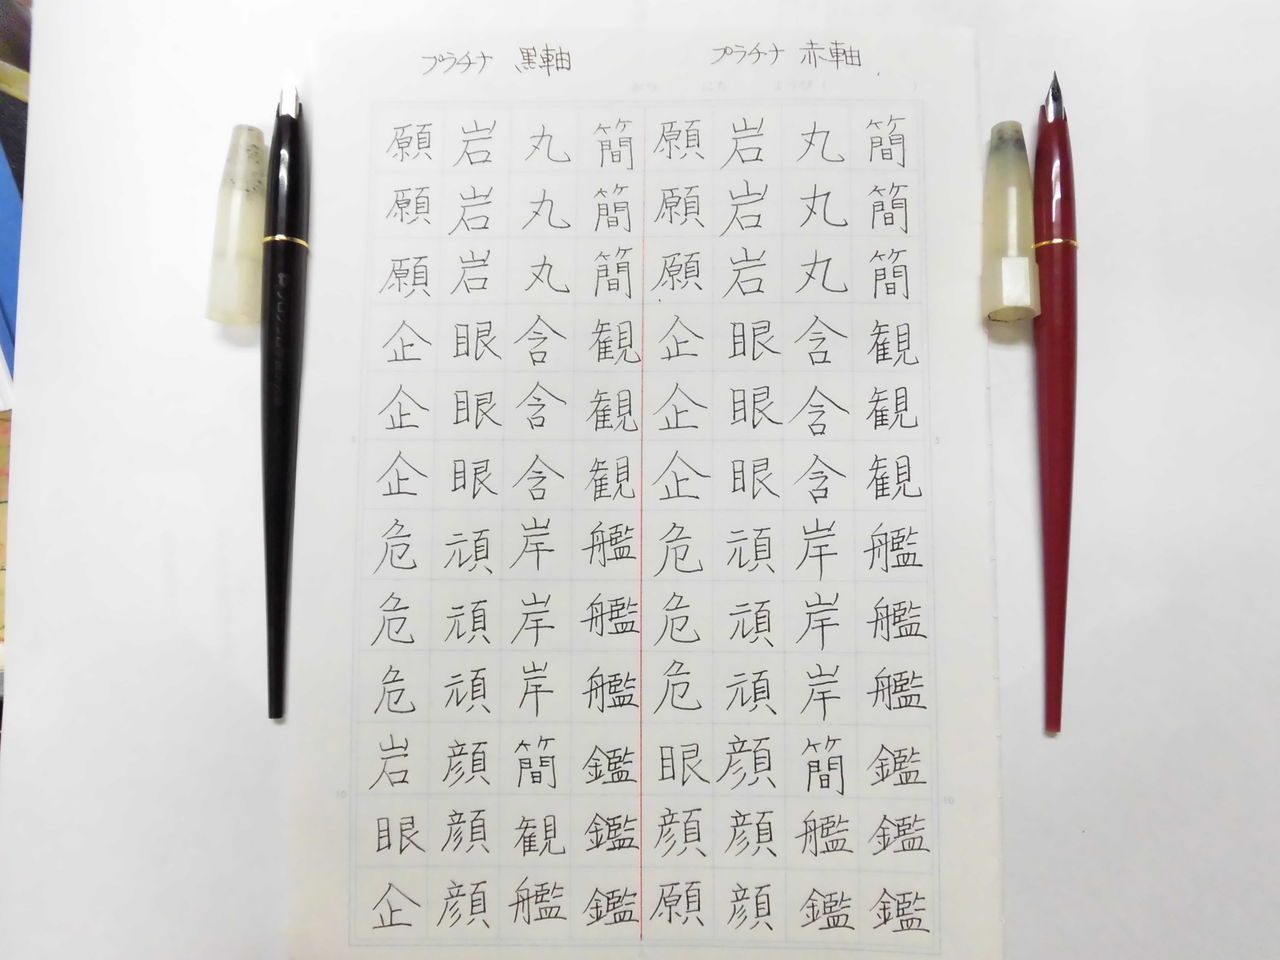 プラチナ 黒軸
プラチナ 赤軸
簡簡簡観観観艦艦艦鑑鑑鑑
丸丸丸含含含岸岸岸簡艦鑑
岩岩岩眼眼眼頑頑頑顔顔顔
願願願企企企危危危眼顔願
簡簡簡観観観艦艦艦鑑鑑鑑
丸丸丸含含含岸岸岸簡観艦
岩岩岩眼眼眼頑頑頑顔顔顔
願願願企企企危危危岩眼企